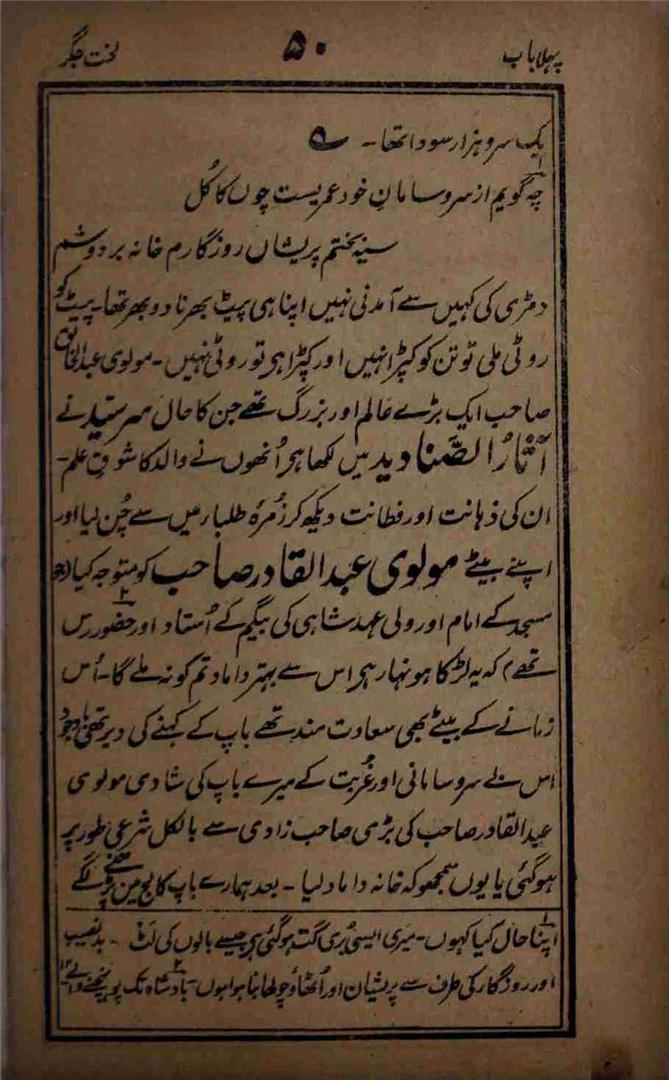 پہلا باب ۵۰ لخت جگر
یک سر و ہزار سودا تھا۔ ؎
چہ گویم از سر و سامانِ خود عمریست چوں کاکُل
سیہ بختم پریشاں روزگارم خانہ بردوشم
دمڑی کی کہیں سے آمدنی نہیں اپنا ہی پیٹ بھرنا دوبھر تھا۔ پیٹ کو
روٹی ملی تو تن کو کپڑا نہیں اور کپڑا ہر تو روٹی نہیں۔ مولوی عبدالخالق
صاحب ایک بڑے عالم اور بزرگ تھے جن کا حال سرسید نے
آثارُ الصَّنادید میں لکھا ہر اُنھوں نے والد کا شوقِ علم۔
ان کی ذہانت اور فطانت دیکھ کر زُمرۂ طلبار میں سے چُن لیا اور
اپنے بیٹے مولوی عبدالقادر صاحب کو متوجہ کیا (جو
مسجد کے امام اور ولی عہد شاہی کی بیگم کے اُستاد اور حضور رس
تھے) کہ یہ لڑکا ہونہار ہر اس سے بہتر داماد تم کو نہ ملے گا۔ اُس
زمانے کے بیٹے بھی سعادت مند تھے باپ کے کہنے کی دیر تھی باوجود
اس بے سروسامانی اور غُربت کے میرے باپ کی شادی مولوی
عبدالقادر صاحب کی بڑی صاحب زادی سے بالکل شرعی طور پر
ہو گئی یا یوں سمجھو کہ خانہ داماد لیا۔ بعد ہمارے باپ کالج میں پڑھنے لگے
۱؎ اپنا حال کیا کہوں۔ میری ایسی بُری گت ہو گئی ہر جیسے بالوں کی لَٹ ۔ بدنصیب
اور روزگار کی طرف سے پریشان اور اُٹھاؤ چولھا بنا ہوا ہوں۔ ۲؎ بادشاہ تک پہونچنے والے ۱۲